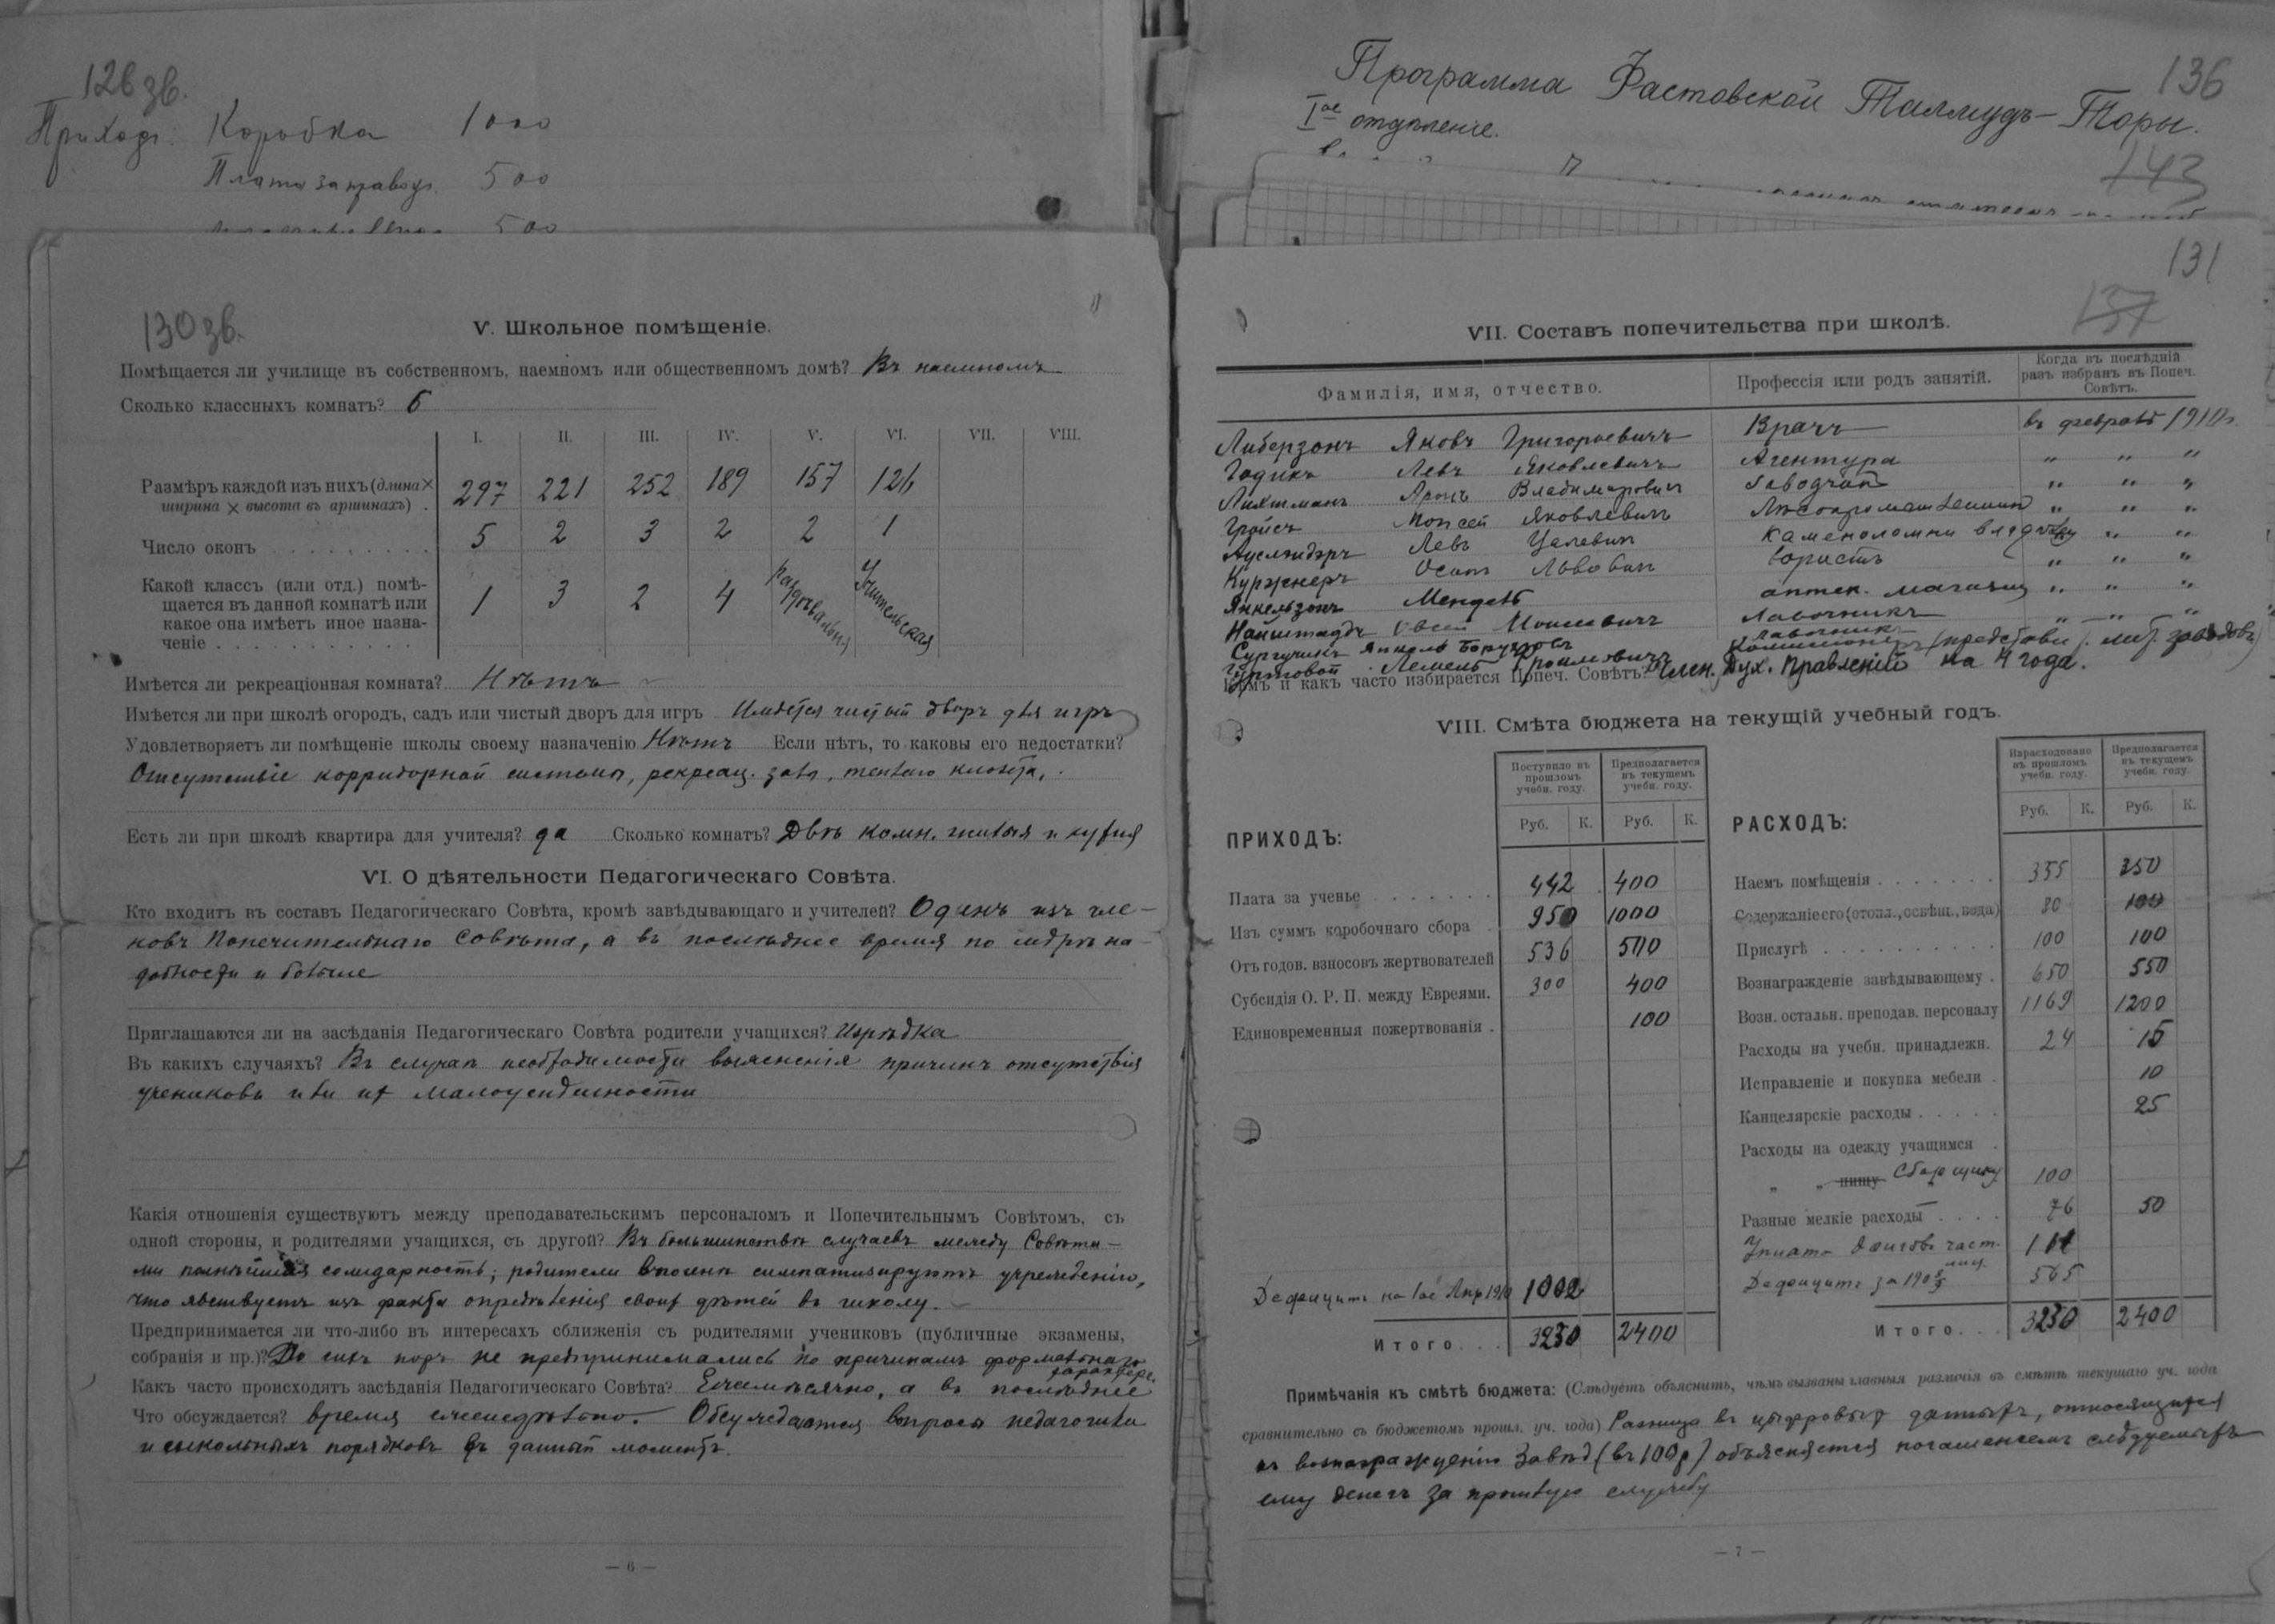 126 зв.
Приходъ. Коробка 1000
Плата за правоуч. 500
500
Программа Фастовской Талмудъ-Торы.
136
Iое отдѣленіе.
143
130 зв.
V. Школьное помѣщеніе.
Помѣщается ли училище въ собственномъ, наемномъ или общественномъ домѣ? Въ наемномъ
Сколько классныхъ комнатъ? 6
I. II. III. IV. V. VI. VII. VIII.
Размѣръ каждой изъ нихъ (длина ×
ширина × высота въ аршинахъ) . 297 221 252 189 157 126
Число оконъ . . . . . . . . . 5 2 3 2 2 1
Какой классъ (или отд.) помѣ-
щается въ данной комнатѣ или
какое она имѣетъ иное назна-
ченіе . . . . . . . . . . . 1 3 2 4 Раздѣвальня Учительская
Имѣется ли рекреаціонная комната? Нѣтъ
Имѣется ли при школѣ огородъ, садъ или чистый дворъ для игръ Имѣется чистый дворъ для игръ
Удовлетворяетъ ли помѣщеніе школы своему назначенію Нѣтъ Если нѣтъ, то каковы его недостатки?
Отсутствіе корридорной системы, рекреац. зала, теплаго клозета.
Есть ли при школѣ квартира для учителя? да Сколько комнатъ? Двѣ комн. жилыя и кухня
VI. О дѣятельности Педагогическаго Совѣта.
Кто входитъ въ составъ Педагогическаго Совѣта, кромѣ завѣдывающаго и учителей? Одинъ изъ чле-
новъ Попечительнаго Совѣта, а въ послѣднее время по мѣрѣ на-
добности и больше
Приглашаются ли на засѣданія Педагогическаго Совѣта родители учащихся? Изрѣдка
Въ какихъ случаяхъ? Въ случаѣ необходимости выясненія причинъ отсутствія
учениковъ или их малоусидчивости
Какія отношенія существуютъ между преподавательскимъ персоналомъ и Попечительнымъ Совѣтомъ, съ
одной стороны, и родителями учащихся, съ другой? Въ большинствѣ случаевъ между Совѣта-
ми полнѣйшая солидарность; родители вполнѣ симпатизируютъ учрежденію,
что явствуетъ изъ факта опредѣленія своих дѣтей въ школу.
Предпринимается ли что-либо въ интересахъ сближенія съ родителями учениковъ (публичные экзамены,
собранія и пр.)? До сихъ поръ не предпринимались по причинамъ формальнаго
характера.
Какъ часто происходятъ засѣданія Педагогическаго Совѣта? Ежемѣсячно, а въ послѣднее
Что обсуждается? время еженедѣльно. Обсуждаются вопросы педагогики
и школьныхъ порядковъ въ данный моментъ.
— 6 —
131
137
VII. Составъ попечительства при школѣ.
Фамилія, имя, отчество. Профессія или родъ занятій. Когда въ послѣдній разъ избранъ въ Попеч. Совѣтъ.
Либерзонъ Яковъ Григорьевичъ Врачъ въ февралѣ 1910г.
Годикъ Левъ Яковлевичъ Агентура " " "
Лихтманъ Аронъ Владимировичъ Заводчикъ " " "
Гройсъ Моисей Яковлевичъ Лѣсопромышленникъ " " "
Левъ Цалевичъ Каменоломни " "
Куржнеръ Осипъ Львовичъ Юристъ " " "
Янкельзонъ Мендель аптек. магазинъ " " "
Найштадтъ Овсей Моисеевичъ Лавочникъ " " "
Сургучикъ Янкель Боруховъ лавочникъ
Гуртовой Лемель Сроилевичъ Коммисіонеръ (представи. заводовъ)
Кѣмъ и какъ часто избирается Попеч. Совѣтъ? Член. Дух. Правленій на 4 года.
VIII. Смѣта бюджета на текущій учебный годъ.
ПРИХОДЪ: Поступило въ прошломъ учебн. году. Предполагается въ текущемъ учебн. году.
Руб. К. Руб. К.
Плата за ученье . . . . . . . 442 400
Изъ суммъ коробочнаго сбора . 950 1000
Отъ годов. взносовъ жертвователей 536 500
Субсидія О. Р. П. между Евреями. 300 400
Единовременныя пожертвованія . 100
Дефицитъ на 1ое Апр 1910 1002
Итого . . . 3230 2400
РАСХОДЪ: Израсходовано въ прошломъ учебн. году. Предполагается въ текущемъ учебн. году.
Руб. К. Руб. К.
Наемъ помѣщенія . . . . . . . 355 350
Содержаніе его (отопл., освѣщ., вода) 80 100
Прислугѣ . . . . . . . . . . 100 100
Вознагражденіе завѣдывающему . 650 550
Возн. остальн. преподав. персоналу 1169 1200
Расходы на учебн. принадлежн. 24 15
Исправленіе и покупка мебели . 10
Канцелярскіе расходы . . . . . 25
Расходы на одежду учащимся .
" " пищу Сборщику 100
Разные мелкіе расходы . . . . 76 50
Уплата долговъ част. лиц. 111
Дефицитъ за 1908/9 565
Итого . . . 3230 2400
Примѣчанія къ смѣтѣ бюджета: (Слѣдуетъ объяснить, чѣмъ вызваны главныя различія въ смѣтѣ текущаго уч. года
сравнительно съ бюджетомъ прошл. уч. года) Разница въ цыфровых данныхъ, относящихся
къ вознагражденію Завѣд (въ 100р) объясняется погашеніемъ слѣдуемыхъ
ему денегъ за прошлую службу
— 7 —